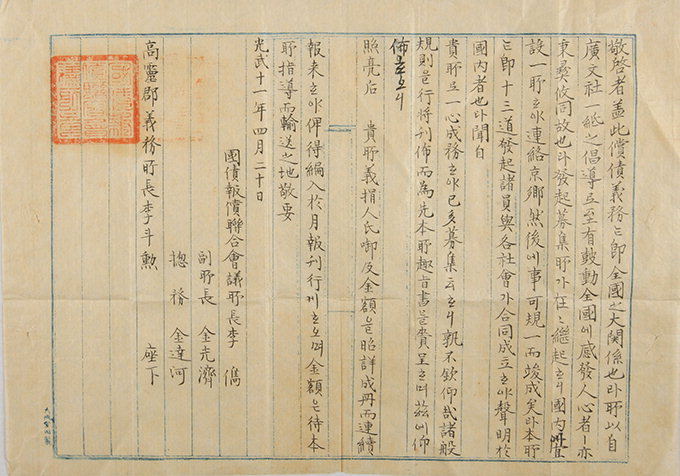 敬啓者盖此償債義務と卽全國之大關係也라所以自
廣文社一紙之倡導로至有鼓動全國에感發人心者ㅣ亦
秉彛攸同故也라發起募集所가在々継起ᄒᆞ니國內
設一所ᄒᆞ야連絡京鄕然後에事可規一而竣成矣라本所
と卽十三道發起諸員與各社會가合同成立ᄒᆞ야聲明於
國內者也라聞自
貴所로一心成務ᄒᆞ야已多募集云ᄒᆞ니孰不欽仰哉諸般
規則을行将刋佈而為先本所趣旨書을賚呈ᄒᆞ며玆에仰
佈ᄒᆞ오니
照亮后 貴所義捐人氏啣及金額을昭詳成冊而連續
報来ᄒᆞ야俾得編入於月報刋行케ᄒᆞ오며金額은待本
所指導而輸送之地敬要
光武十一年四月二十日
國債報償聯合會議所長李儁
副所長 金光濟
摠務 金達河
高靈郡義務所長李斗勲 座下